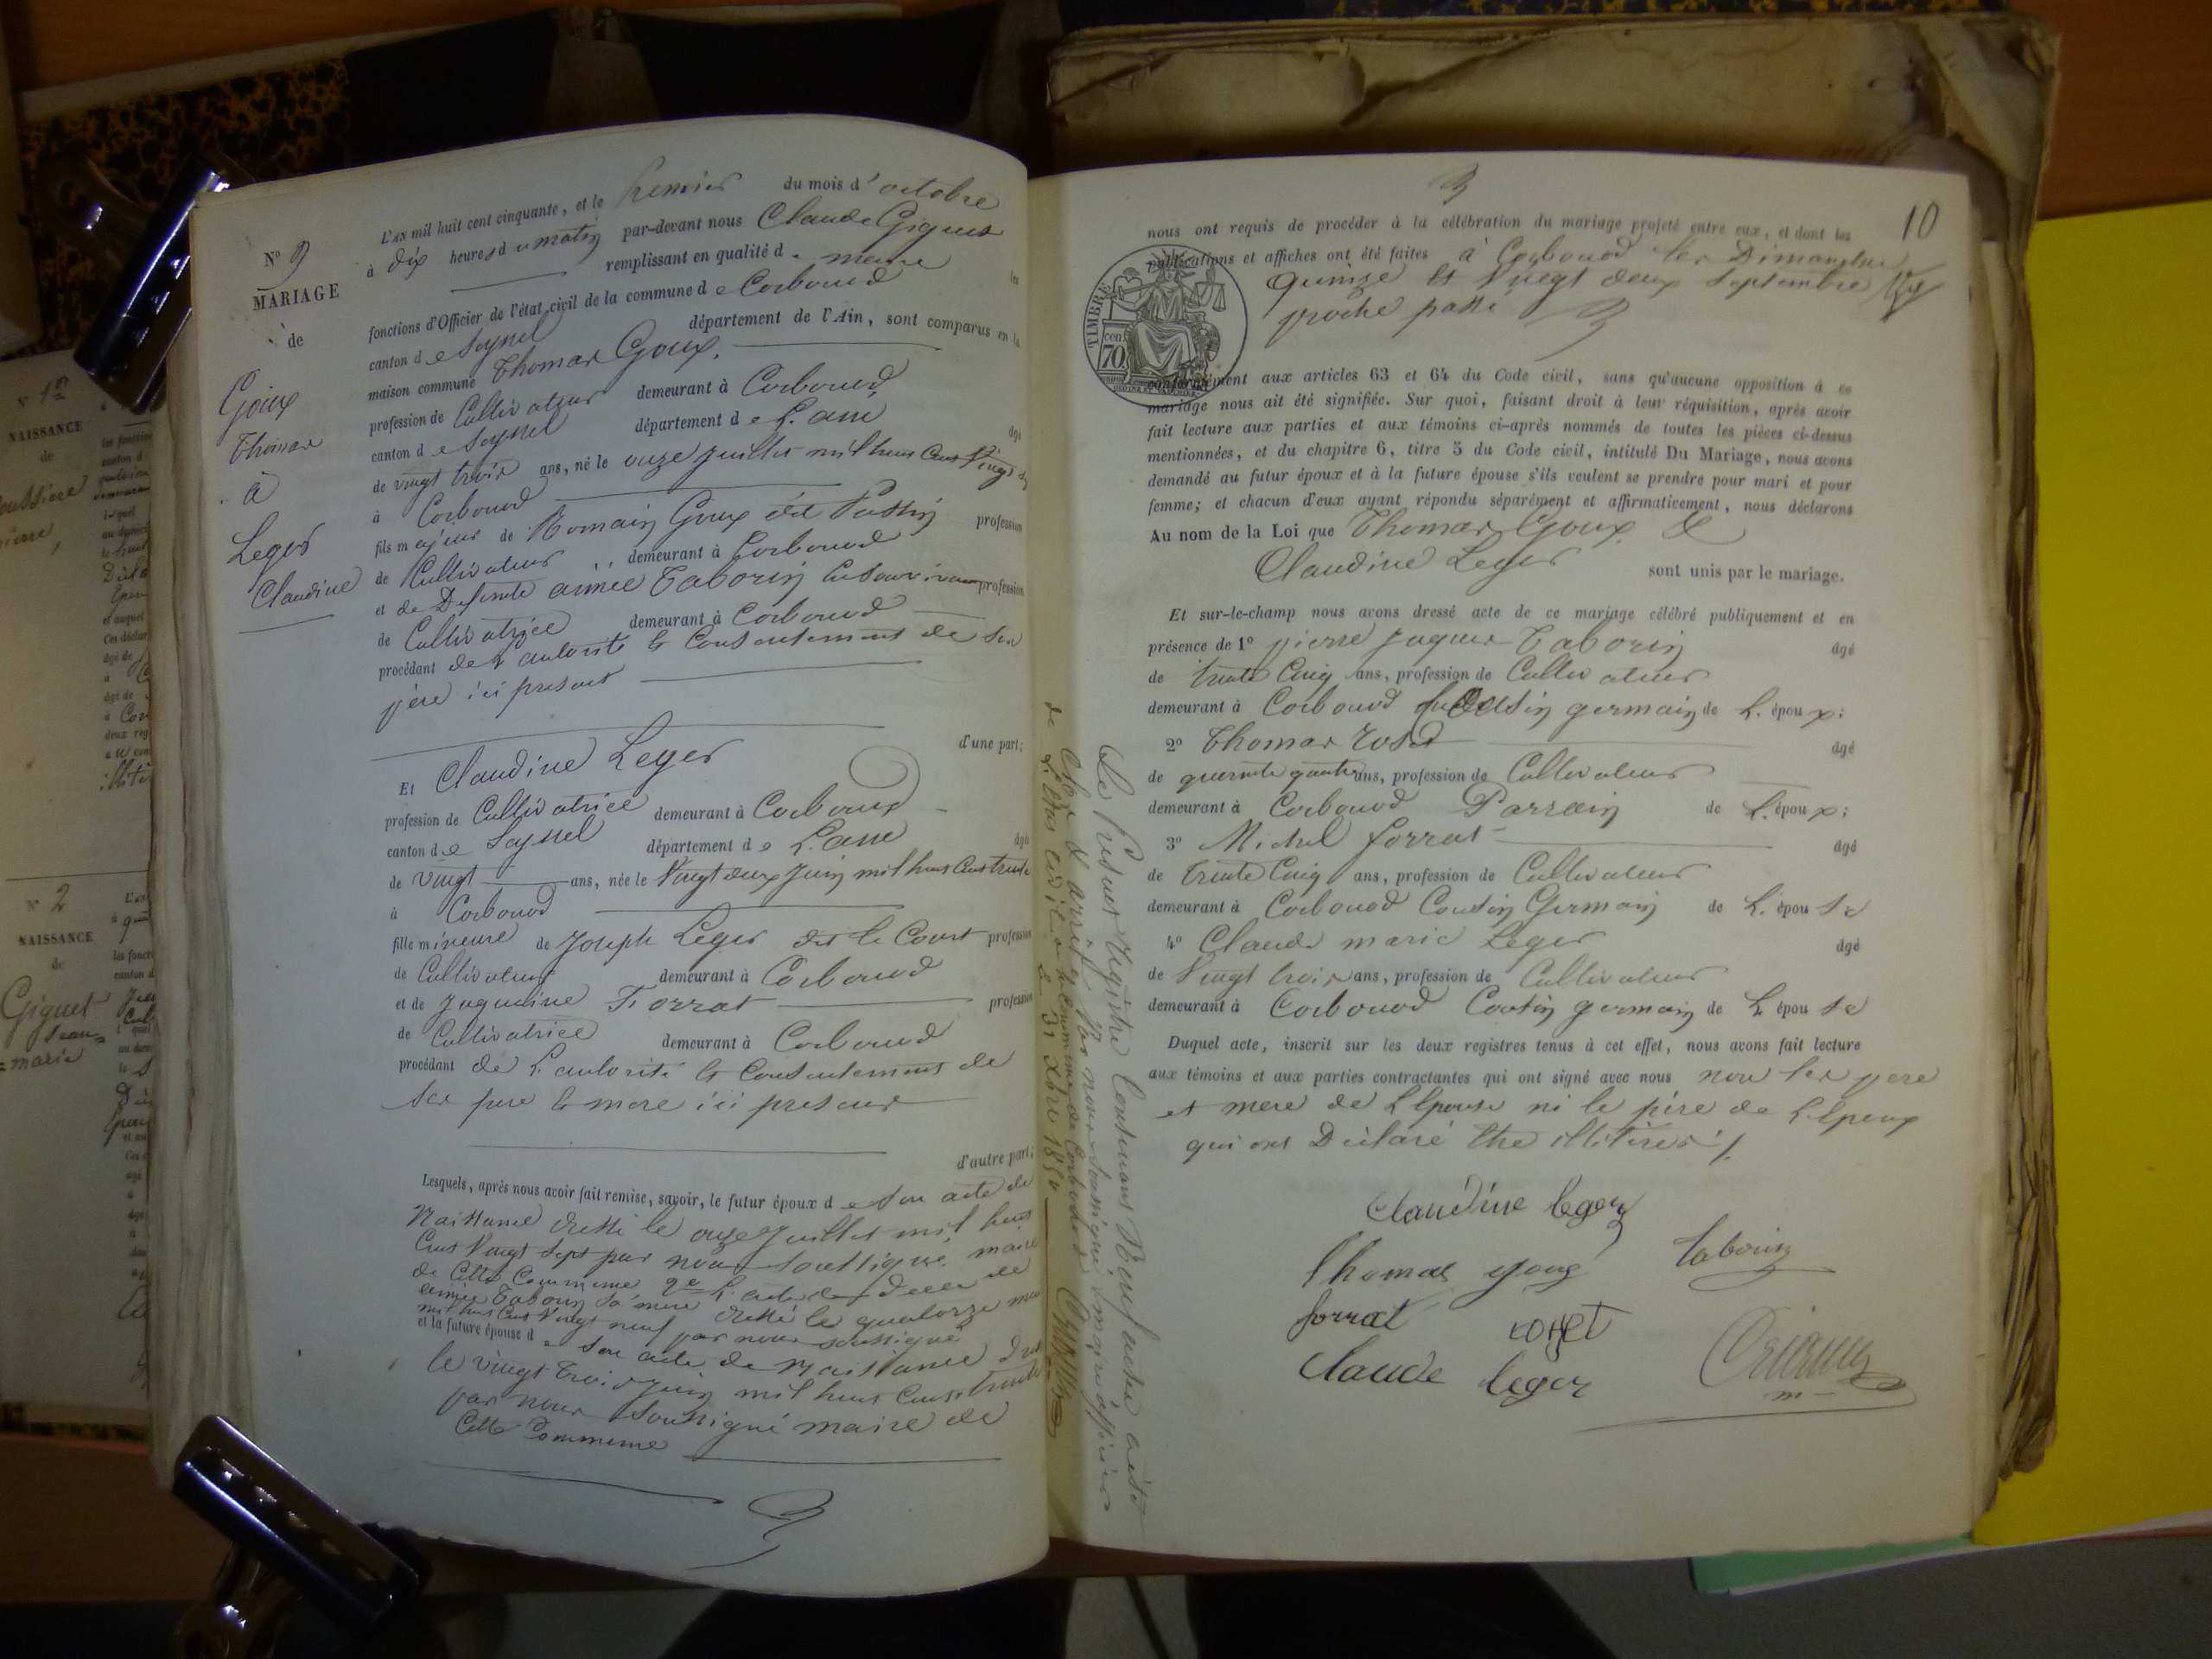 N° 9
MARIAGE
de
Goux
Thomas
à
Leger
Claudine
L'AN mil huit cent cinquante, et le premier du mois d'octobre
à dix heures du matin par-devant nous Claude Giguet
remplissant en qualité d
fonctions d'Officier de l'état civil de la commune de Corbonod
canton de Seyssel département de l'Ain, sont comparus en la
maison commune Thomas Goux,
profession de Cultivateur demeurant à Corbonod,
canton de Seyssel département de L'ain âgé
de vingt trois ans, né le onze juillet mil huit Cent Vingt
à Corbonod
fils majeur de Romain Goux dit profession
de Cultivateur demeurant à Corbonod
et de Defunte aimée Taborin profession
de Cultivatrice demeurant à Corbonod
procédant de L'autorité et Consentement de son
père ici présent
d'une part;
Et Claudine Leger
profession de Cultivatrice demeurant à Corbonod
canton de Seyssel département de L'ain âgée
de vingt ans, née le Vingt deux Juin mil huit Cent trente
à Corbonod
fille mineure de Joseph Leger dit le Court profession
de Cultivateur demeurant à Corbonod
et de Jaqueline Forrat profession
de Cultivatrice demeurant à Corbonod
procédant de L'autorité et Consentement de
ses pere et mere ici present
d'autre part;
Lesquels, après nous avoir fait remise, savoir, le futur époux de son acte de
Naissance dressé le onze Juillet mil huit
Cent Vingt Sept par nous soussigné, maire
de Cette Commune 2° L'acte de deces de
aimée Taborin sa mere dressé le quatorze
mil huit Cent Vingt neuf par nous soussigné
et la future épouse de son acte de Naissance
le vingt trois juin mil huit Cent trente
par nous soussigné maire de
Cette Commune
Le present registre Contenant Neuf
Clos et arrêté par nous soussigné officier
de L'Etat civil de la Commune de Corbonod
le 31 Xbre 1850
10
nous ont requis de procéder à la célébration du mariage projeté entre eux, et dont les
publications et affiches ont été faites à Corbonod les Dimanches
quinze et Vingt deux Septembre
proche passé
TIMBRE
cen
70
conformément aux articles 63 et 64 du Code civil, sans qu'aucune opposition à ce
mariage nous ait été signifiée. Sur quoi, faisant droit à leur réquisition, après avoir
fait lecture aux parties et aux témoins ci-après nommés de toutes les pièces ci-dessus
mentionnées, et du chapitre 6, titre 5 du Code civil, intitulé Du Mariage, nous avons
demandé au futur époux et à la future épouse s'ils veulent se prendre pour mari et pour
femme; et chacun d'eux ayant répondu séparément et affirmativement, nous déclarons
Au nom de la Loi que Thomas Goux &
Claudine Leger sont unis par le mariage.
Et sur-le-champ nous avons dressé acte de ce mariage célébré publiquement et en
présence de 1° pierre Jaques Taborin âgé
de trente Cinq ans, profession de Cultivateur
demeurant à Corbonod Cousin germain de L'époux;
2° Thomas âgé
de ans, profession de Cultivateur
demeurant à Corbonod Parrain de L'époux;
3° Michel forrat âgé
de trente Cinq ans, profession de Cultivateur
demeurant à Corbonod Cousin Germain de L'épouse
4° Claude marie Leger âgé
de Vingt trois ans, profession de Cultivateur
demeurant à Corbonod Cousin germain de L'épouse
Duquel acte, inscrit sur les deux registres tenus à cet effet, nous avons fait lecture
aux témoins et aux parties contractantes qui ont signé avec nous non les pere
et mere de L'Epouse ni le père de L'Epoux
qui ont Déclaré être illitirés
Claudine leger
Thomas goux taborin
forrat
Claude leger
N° 1er
NAISSANCE
de
N° 2
NAISSANCE
de
Giguet
Jean=
=marie